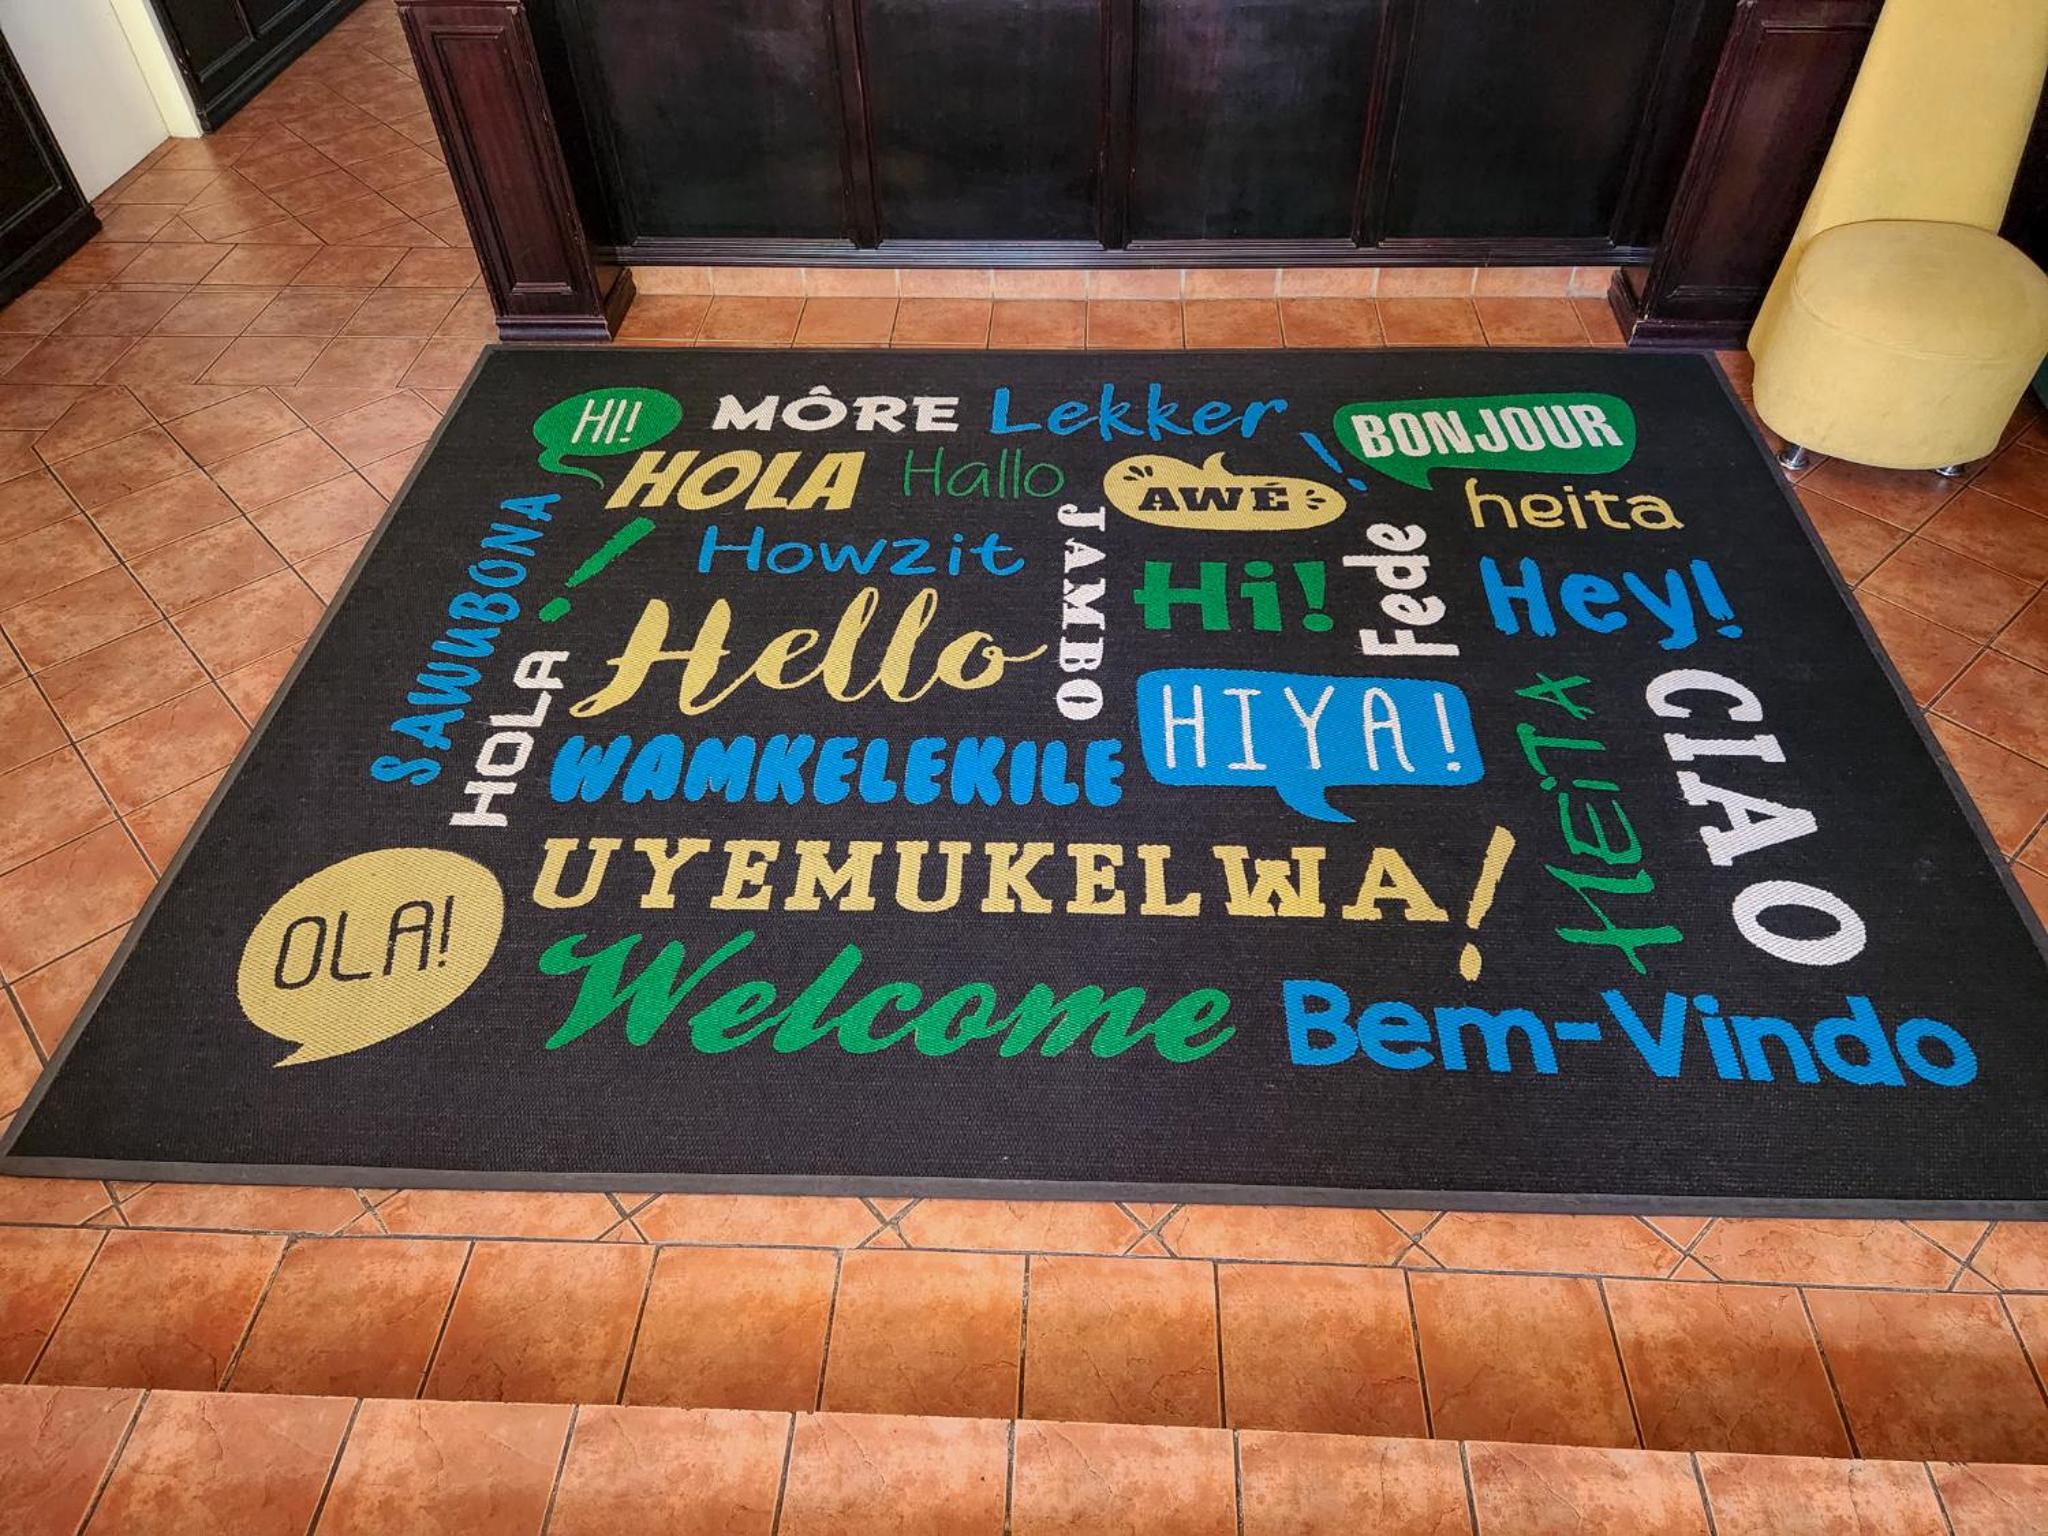 HI!
MÔRE
Lekker!
BONJOUR
HOLA
Hallo
AWÊ
heita
SAWUBONA!
Howzit
JAMBO
Hi!
Fede
Hey!
HOLA
Hello
HIYA!
HEiTA
CIAO
WAMKELEKILE
UYEMUKELWA!
OLA!
Welcome
Bem-Vindo